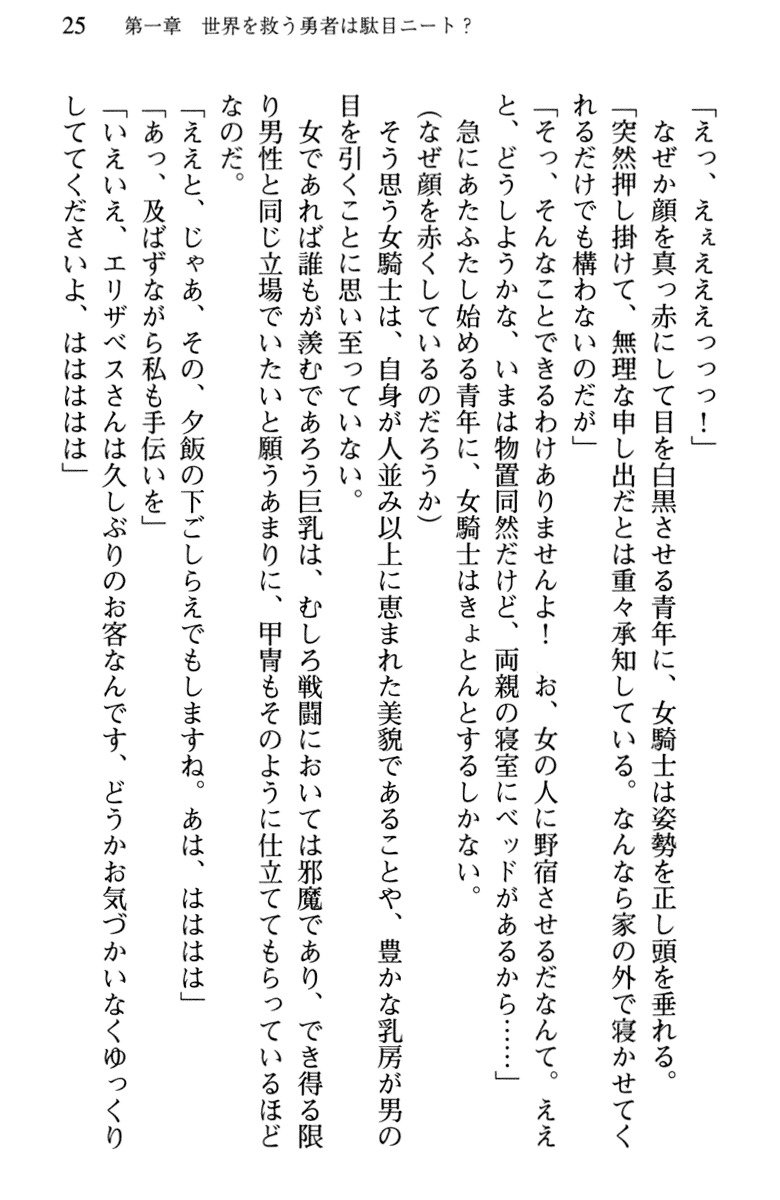 25　第一章　世界を救う勇者は駄目ニート？
「えっ、えぇえええっっっ！」
　なぜか顔を真っ赤にして目を白黒させる青年に、女騎士は姿勢を正し頭を垂れる。
「突然押し掛けて、無理な申し出だとは重々承知している。なんなら家の外で寝かせてく
れるだけでも構わないのだが」
「そっ、そんなことできるわけありませんよ！　お、女の人に野宿させるだなんて。ええ
と、どうしようかな、いまは物置同然だけど、両親の寝室にベッドがあるから……」
　急にあたふたし始める青年に、女騎士はきょとんとするしかない。
（なぜ顔を赤くしているのだろうか）
　そう思う女騎士は、自身が人並み以上に恵まれた美貌であることや、豊かな乳房が男の
目を引くことに思い至っていない。
　女であれば誰もが羨むであろう巨乳は、むしろ戦闘においては邪魔であり、でき得る限
り男性と同じ立場でいたいと願うあまりに、甲冑もそのように仕立ててもらっているほど
なのだ。
「ええと、じゃあ、その、夕飯の下ごしらえでもしますね。あは、はははは」
「あっ、及ばずながら私も手伝いを」
「いえいえ、エリザベスさんは久しぶりのお客なんです、どうかお気づかいなくゆっくり
しててくださいよ、ははははは」